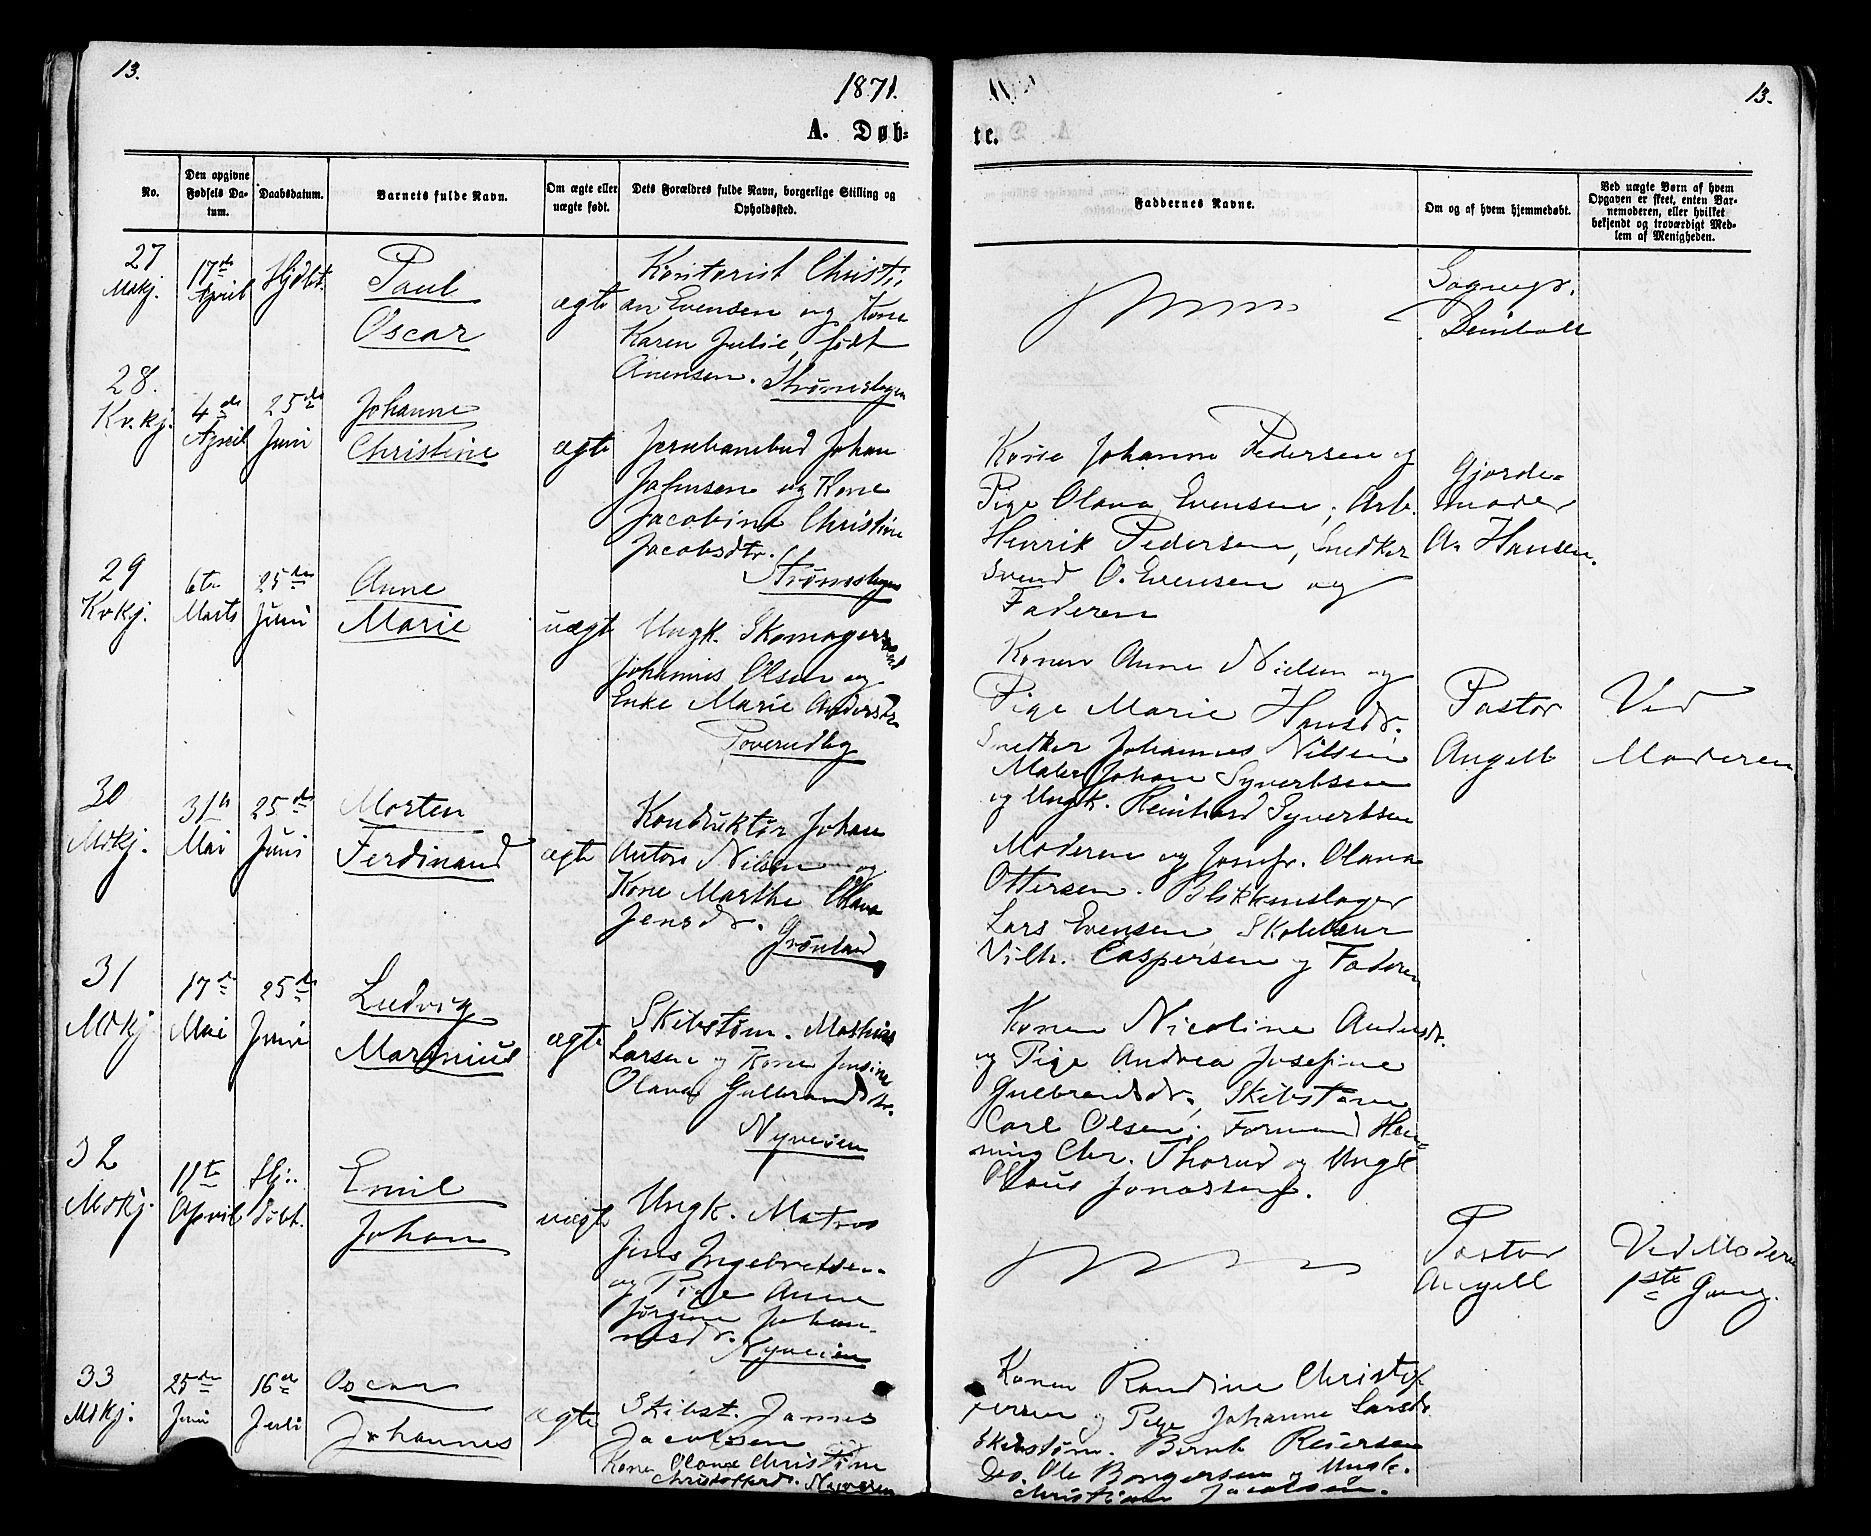 13.
1871.
A. Døb-
No.
Den opgivne Fødsels Da-
tum.
Daabsdatum.
Barnets fulde Navn.
Om ægte eller
uægte født.
Dets Forældres fulde Navn, borgerlige Stilling og
Opholdssted.
27
Mdkj.
17de
April
Hjdbt.
Paul
Oscar
ægte
Kontorist Christi-
an Evensen og Kone
Karen Julie, født
Anensen. Strømslagen
28.
Kv.kj.
4de
April
25de
Juni
Johanne
Christine
ægte
Jernbanebud Johan
Johnsen og Kone
Jacobine Christine
Jacobsdtr.
Strømslagen
29
Kvkj.
6te
Marts
25de
Juni
Anne
Marie
uægte
Ungk. Skomagersvend
Johannes Olsen og
Enke Marie Andersdtr
30
Mdkj.
31te
Mai
25de
Juni
Morten
Ferdinand
ægte
Konduktør Johan
Anton Nilsen og
Kone Marthe Olava
Jensdr.
Grønland
31
Mdkj.
17de
Mai
25de
Juni
Ludvig
Marinius
ægte
Skibstøm. Mathias
Larsen og Kone Jensine
Olava Gulbrandsdtr.
Nyveien
32
Mdkj.
11te
April
Hj.
døbt.
Emil
Johan
uægte
Ungk. Matros
Jens Ingebretsen
og Pige Anne
Jørgine Johan-
nesdr.
Nyveien
33
Mdkj.
25de
Juni
16de
Juli
Oscar
Johannes
ægte
Skibst. James
Jacobsen
Kone Olava Christine
Christoffersd. Nyveien
13.
te.
Faddernes Navne.
Om og af hvem hjemmedøbt.
Ved uægte Børn af hvem
Opgaven er skeet, enten Bar-
nemoderen, eller hvilket
bekjendt og troværdigt Med-
lem af Menigheden.
Sognepr.
Deinboll
Kone Johanne Pedersen og
Pige Olava Evensen, Arb.
Henrik Pedersen, Snedker
Svend O. Evensen og
Faderen
Gjorde-
moder
A. Hansen.
Konen Anne Nielsen og
Pige Marie Hansdr.
Snedker Johannes Nilsen
Maler Johan Syvertsen
og Ungk. Reinhard Syvertsen
Pastor
Angell
Ved
Moderen
Moderen og Jomfr. Olava
Ottersen. Blikkenslager
Lars Evensen,
Vilh. Caspersen og Faderen
Konen Nicoline Andersdr.
og Pige Andrea Josefine
Gulbrandsdr., Skibstøm
Carl Olsen, Formand Hen-
ning Chr. Thorud og Ungk
Olaus Jonassen.
Pastor
Angell
Ved Moderen
1ste Gang.
Konen Randine Christof-
fersen og Pige Johanne Larsdr
Skibstøm. Bernt Reiersen
Do. Ole Borgersen og Ungk.
Christian Jacobsen.